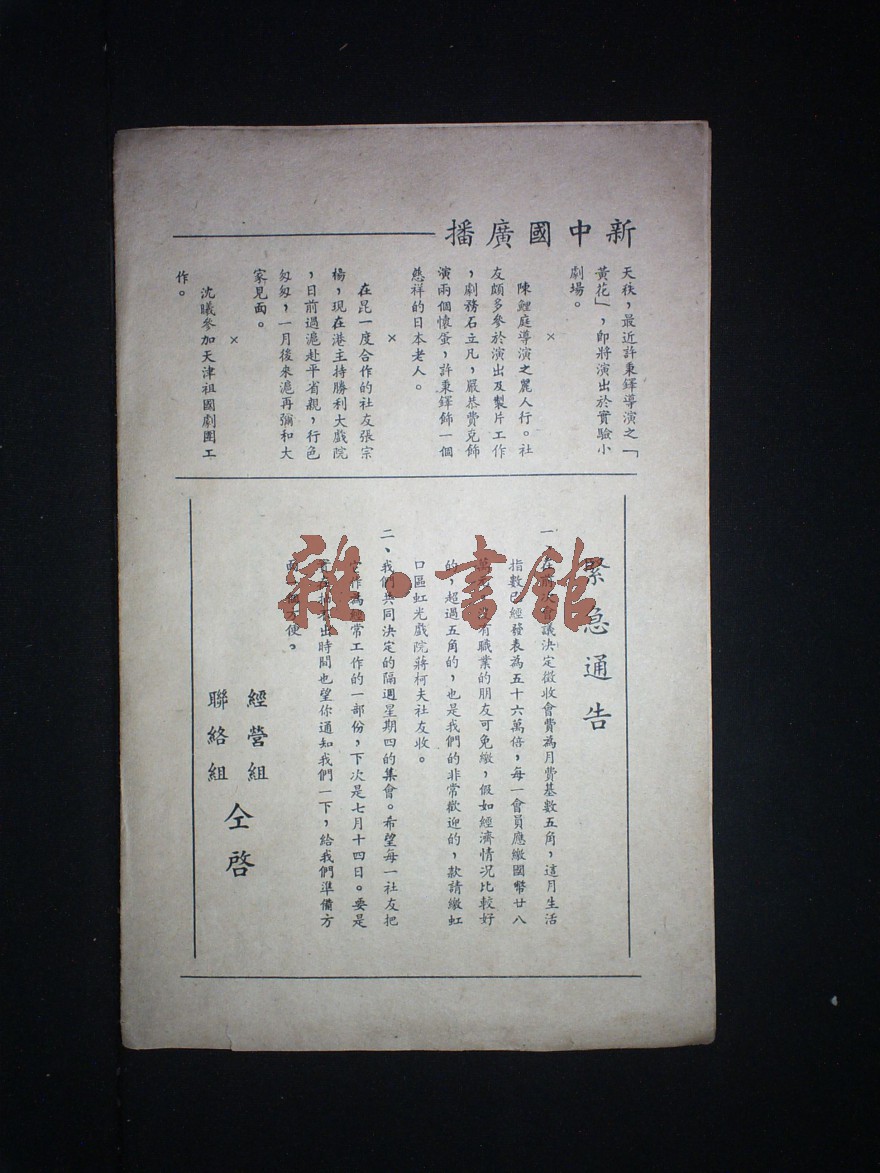 新中國廣播
天秩，最近許秉鐸導演之「
黃花」，即將演出於實驗小
劇場。
×
陳鯉庭導演之麗人行。社
友頗多參於演出及製片工作
，劇務石立凡，嚴恭費克飾
演兩個懷蛋，許秉鐸飾一個
慈祥的日本老人。
×
在昆一度合作的社友張宗
楊，現在港主持勝利大戲院
，日前過滬赴平省親，行色
匆匆，一月後來滬再彌和大
家見面。
×
沈曦參加天津祖國劇團工
作。
緊急通告
一、在 會議決定徵收會費為月費基數五角，這月生活
指數已經發表為五十六萬倍，每一會員應繳國幣廿八
萬 沒有職業的朋友可免繳，假如經濟情況比較好
的，超過五角的，也是我們的非常歡迎的，款請繳虹
口區虹光戲院蔣柯夫社友收。
二、我們共同決定的隔週星期四的集會。希望每一社友把
它作為經常工作的一部份，下次是七月十四日。要是
出時間也望你通知我們一下，給我們準備方
面 方便。
經營組
聯絡組
仝啓
雜·書館